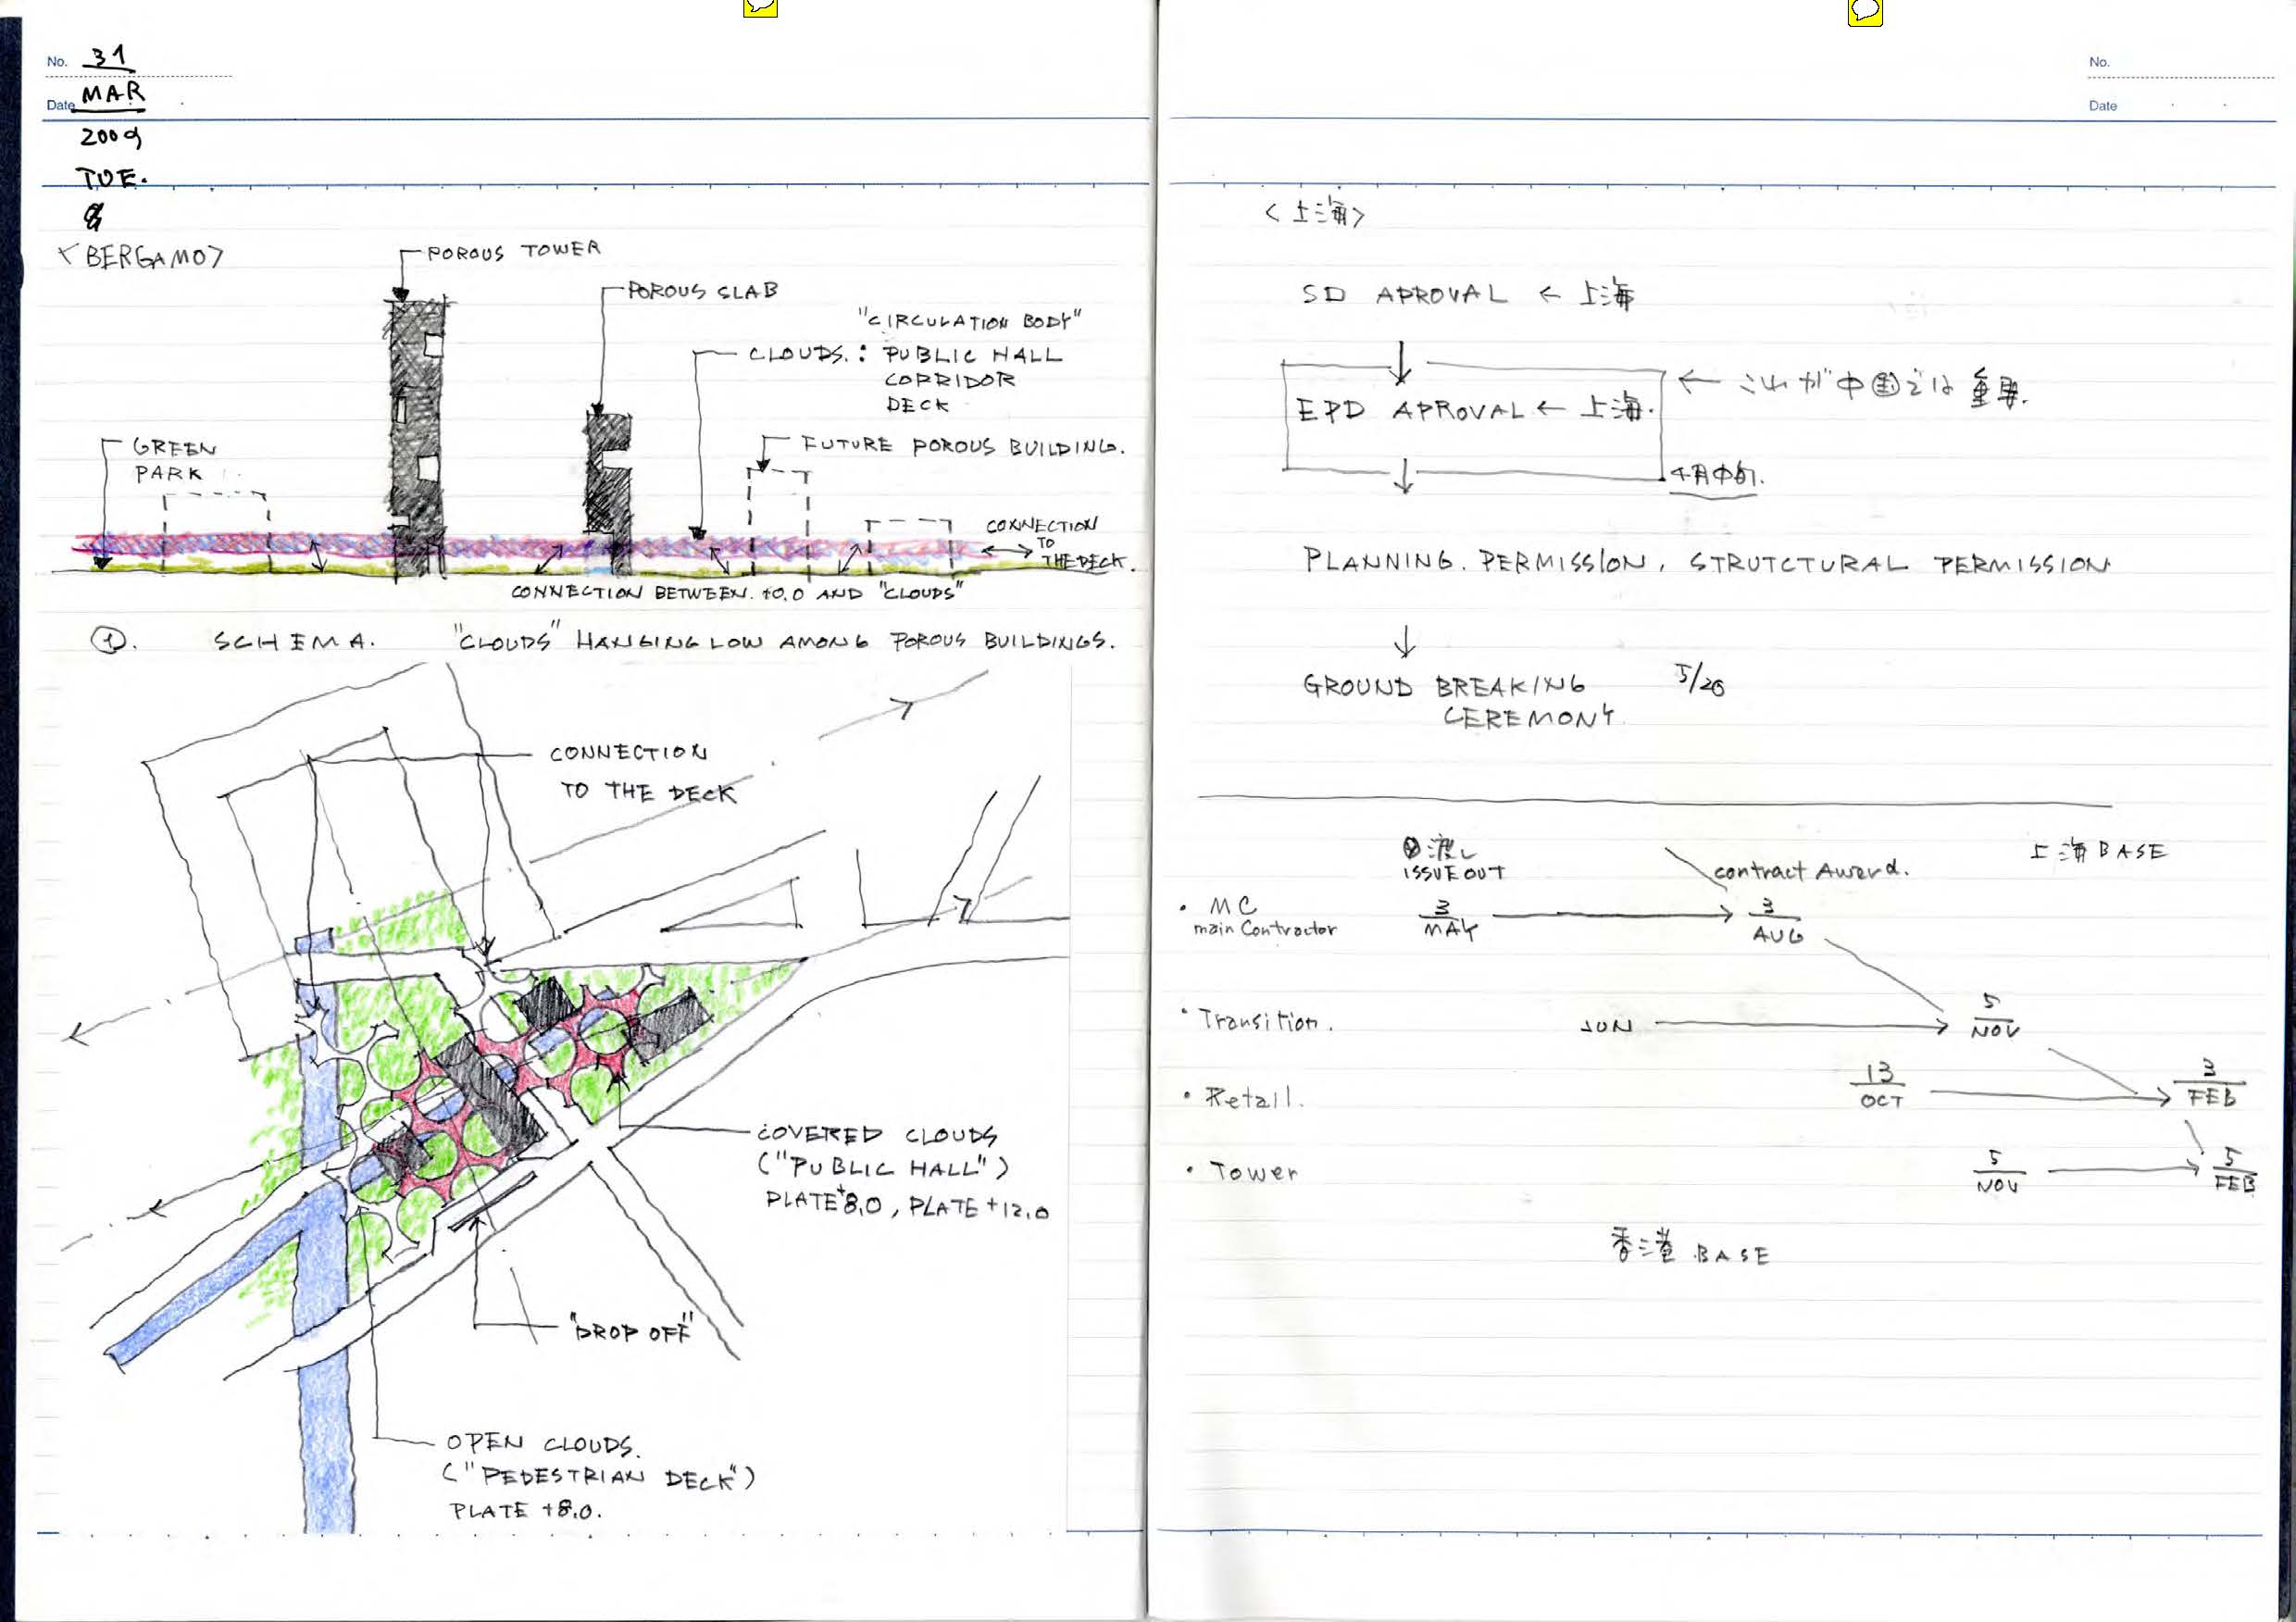 No. 31
Date MAR
2009
TUE.
<BERGAMO>
POROUS TOWER
POROUS SLAB
"CIRCULATION BODY"
CLOUDS. : PUBLIC HALL
CORRIDOR
DECK
GREEN
PARK
FUTURE POROUS BUILDING.
CONNECTION
TO
THE DECK.
CONNECTION BETWEEN. ±0.0 AND "CLOUDS"
①. SCHEMA. "CLOUDS" HANGING LOW AMONG POROUS BUILDINGS.
CONNECTION
TO THE DECK
COVERED CLOUDS
("PUBLIC HALL")
PLATE +8.0, PLATE +12.0
"DROP OFF"
OPEN CLOUDS.
("PEDESTRIAN DECK")
PLATE +8.0.
No.
Date
<上海>
SD APROVAL ← 上海
↓
EPD APROVAL ← 上海.
← これが中国では重要.
4月中旬.
↓
PLANNING. PERMISSION, STRUTCTURAL PERMISSION
↓
GROUND BREAKING 5/20
CEREMONY.
渡し
ISSUE OUT
contract Award.
上海 BASE
• MC 3 MAY → 3 AUG
main Contractor
• Transition. JUN → 5 NOV
• Retail. 13 OCT → 3 FEB
• Tower 5 NOV → 5 FEB
香港 BASE